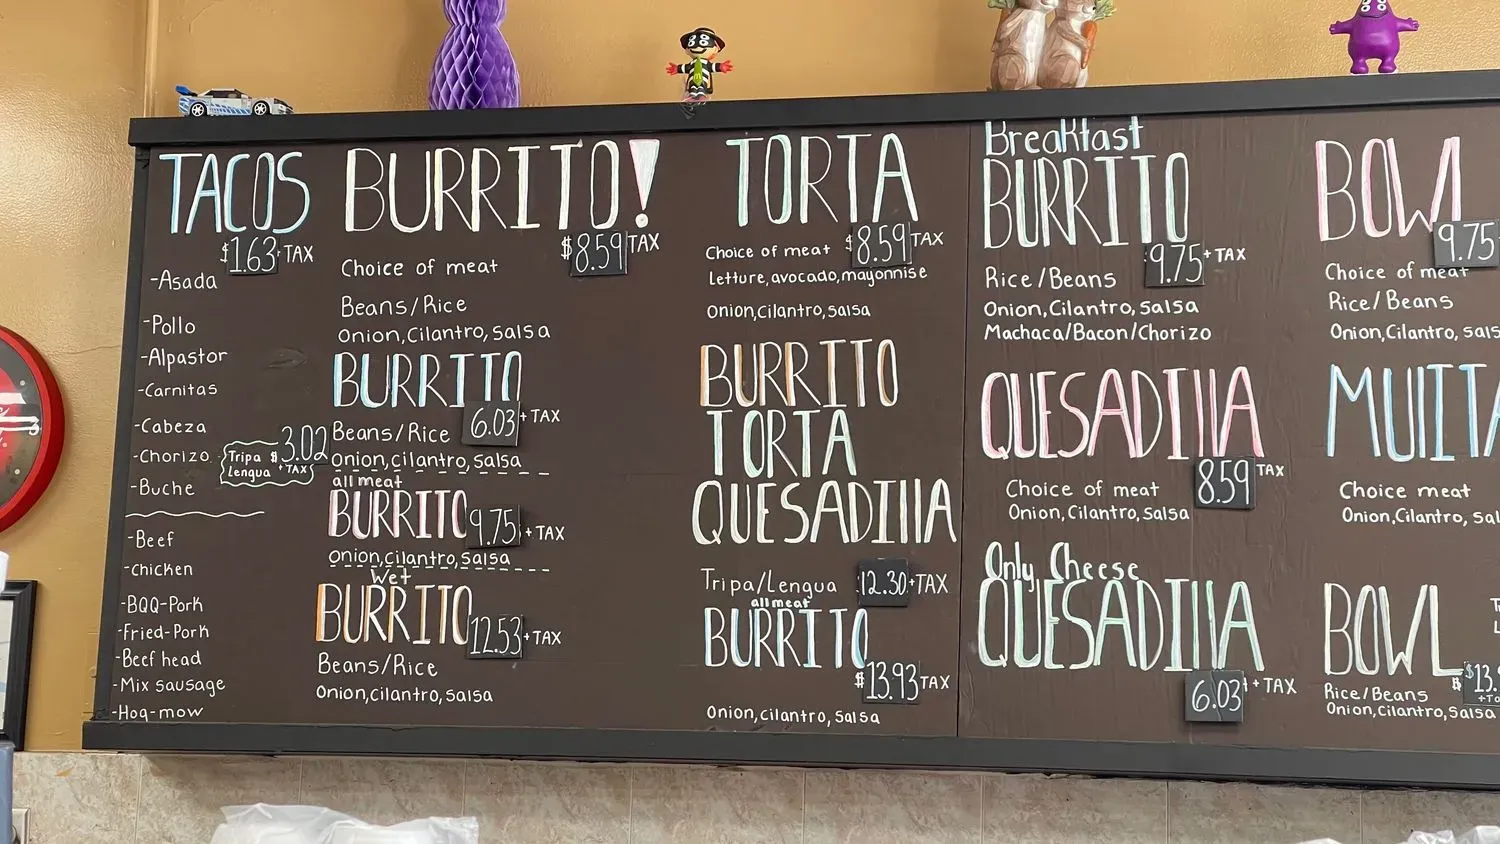 TACOS
$1.63+TAX
-Asada
-Pollo
-Alpastor
-Carnitas
-Cabeza
-Chorizo
-Buche
Tripa $3.02
Lengua +TAX
-Beef
-chicken
-BQQ-Pork
-Fried-Pork
-Beef head
-Mix sausage
-Hog-mow
BURRITO!
$8.59 TAX
Choice of meat
Beans/Rice
Onion,Cilantro,salsa
BURRITO
6.03+TAX
Beans/Rice
Onion,cilantro, salsa
all meat
BURRITO
9.75+TAX
Onion,cilantro,salsa
Wet
BURRITO
12.53+TAX
Beans/Rice
Onion,cilantro,salsa
TORTA
Choice of meat $8.59TAX
Letture,avocado,mayonnise
Onion,cilantro,salsa
BURRITO
TORTA
QUESADIllA
Tripa/Lengua 12.30+TAX
all meat
BURRITO
$13.93TAX
Onion,cilantro,salsa
Breakfast
BURRITO
9.75+TAX
Rice/Beans
Onion,Cilantro,salsa
Machaca/Bacon/Chorizo
QUESADIllA
8.59 TAX
Choice of meat
Onion,Cilantro,salsa
Only Cheese
QUESADIllA
6.03++TAX
BOWL
9.75
Choice of meat
Rice/Beans
Onion,Cilantro, sals
MUlITA
Choice meat
Onion,Cilantro, sal
BOWL
$13.
Rice/Beans
Onion,cilantro,salsa